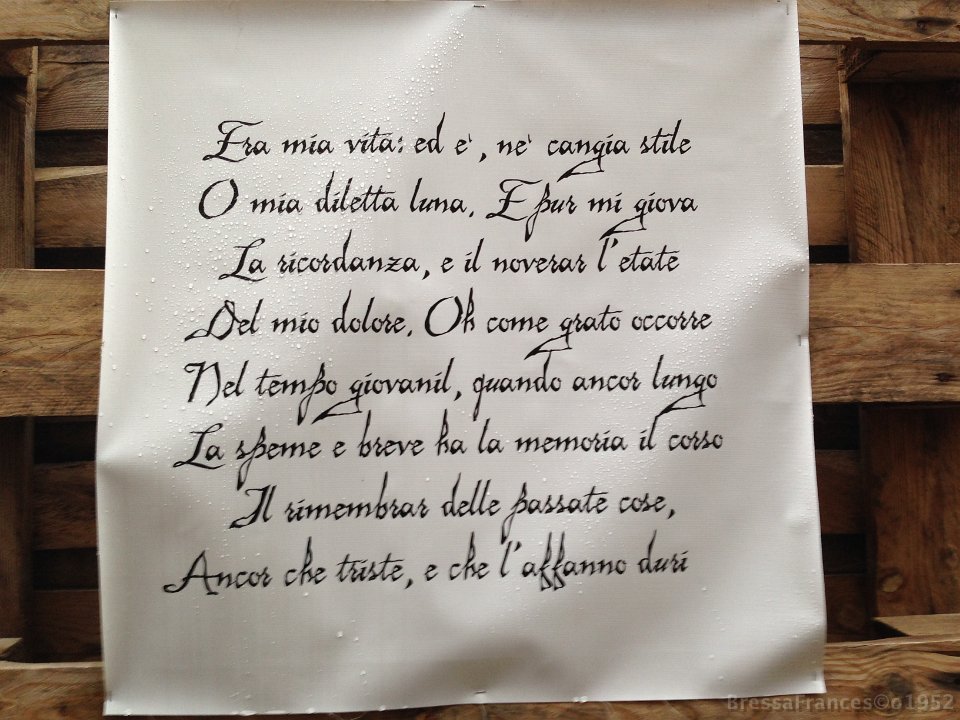 Era mia vita: ed e', ne' cangia stile
O mia diletta luna. E pur mi giova
La ricordanza, e il noverar l'etate
Del mio dolore. Oh come grato occorre
Nel tempo giovanil, quando ancor lungo
La speme e breve ha la memoria il corso
Il rimembrar delle passate cose,
Ancor che triste, e che l'affanno duri
BressaFrances©o1952